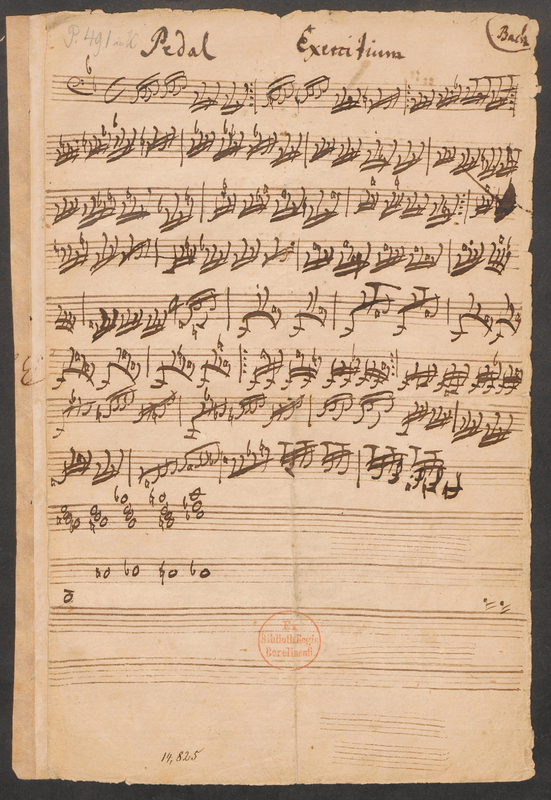 P. 491
Pedal Exercitium
Bach
Ex
Bibliotheca Regia
Berolinensi.
14,825